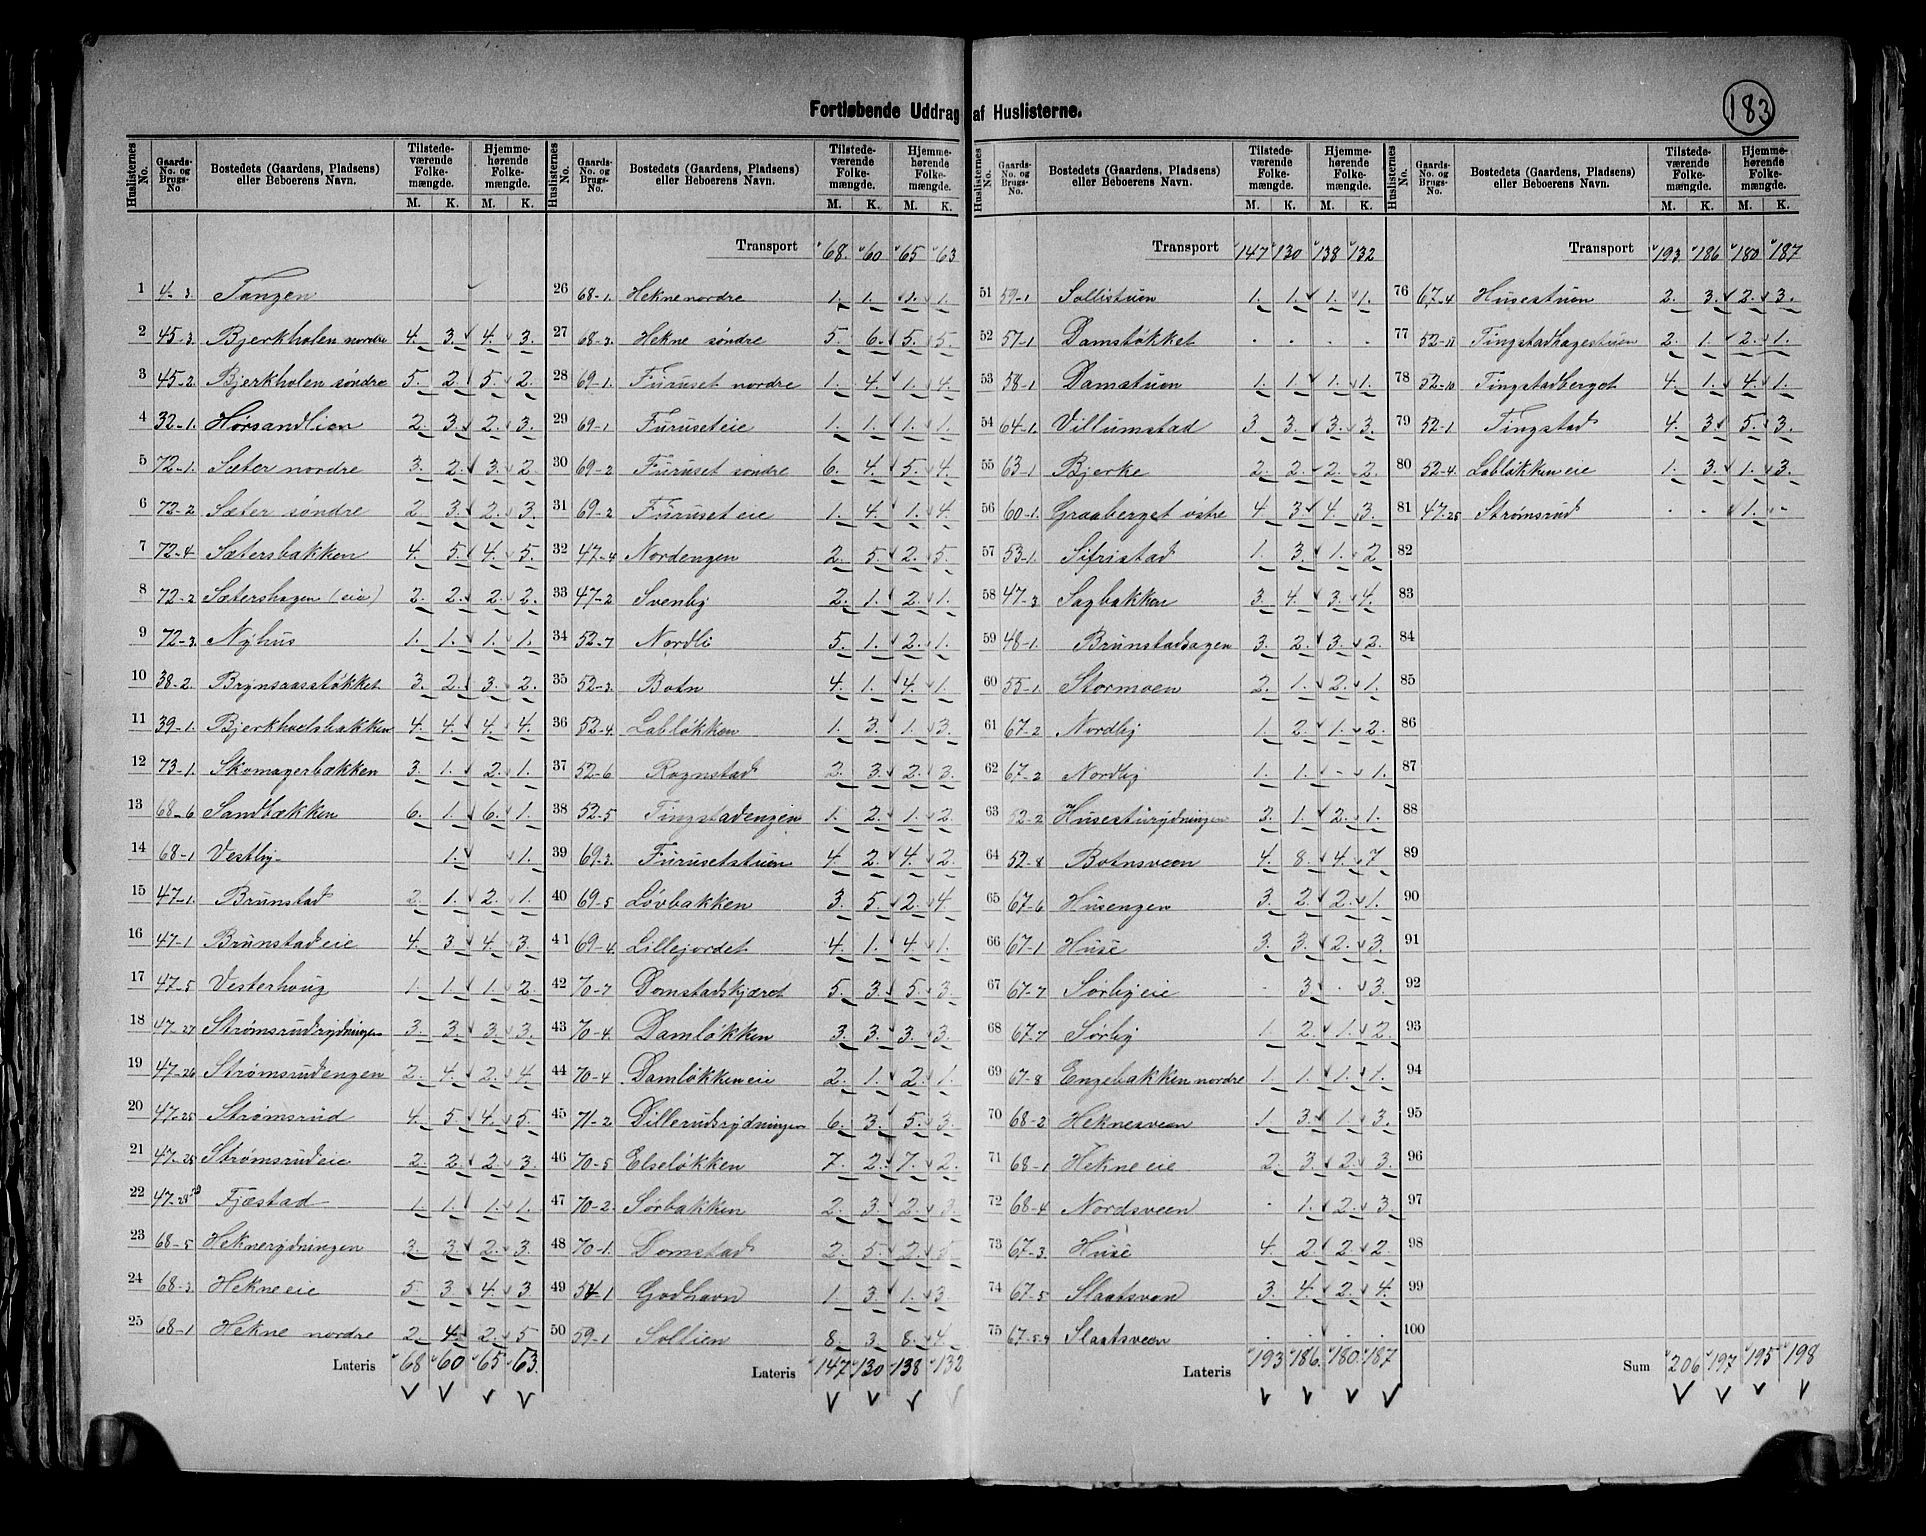 Fortløbende Uddrag af Huslisterne.
183
Huslisternes No. Gaards-No. og Brugs-No Bostedets (Gaardens, Pladsens) eller Beboerens Navn. Tilstedeværende Folkemængde. M. K. Hjemmehørende Folkemængde. M. K.
1 4-3. Tangen
2 45-3. Bjerkholen nordre 4. 3. 4. 3.
3 45-2. Bjerkholen søndre 5. 2. 5. 2.
4 32-1. Hørsandlien 2. 3. 2. 3.
5 72-1. Sæter nordre 3. 2. 3. 2.
6 72-2 Sæter søndre 2. 3. 2. 3.
7 72-4 Sætersbakken 4. 5. 4. 5.
8 72-2 Sætershagen (eie) 2. 2. 2. 2.
9 72-3. Nyhus 1. 1. 1. 1.
10 38-2. Brynsaasstøkket 3. 2. 3. 2.
11 39-1. Bjerkhoelsbakken 4. 4. 4. 4.
12 73-1. Skomagerbækken 3. 1. 2. 1.
13 68-6 Sandbækken 6. 1. 6. 1.
14 68-1 Vestby 1. 1.
15 47-1. Brunstad 2. 1. 2. 1.
16 47-1 Brunstad eie 4. 3. 4. 3.
17 47-5 Vesterhoug 1. 1. 1. 2.
18 47-27 Strømsrudrydningen 3. 3. 3. 3.
19 47-26 Strømsrudengen 2. 4. 2. 4.
20 47-25 Strømsrud 4. 5. 4. 5.
21 47-25 Strømsrudeie 2. 2. 2. 3.
22 47-28 Fjæstad 1. 1. 1. 1.
23 68-5 Heknerydningen 3. 3. 2. 3.
24 68-3 Hekne eie 5 3. 4. 3
25 68-1 Hekne nordre 2. 4. 2. 5
Lateris 68 60 65 63.
Huslisternes No. Gaards-No. og Brugs-No Bostedets (Gaardens, Pladsens) eller Beboerens Navn. Tilstedeværende Folkemængde. M. K. Hjemmehørende Folkemængde. M. K.
Transport 68. 60 65 63
26 68-1. Hekne nordre 1. 1. 1. 1.
27 68-3. Hekne søndre 5. 6. 5. 5.
28 69-1. Furuset nordre 1. 4. 1. 4.
29 69-1 Furuset eie 1. 1. 1. 1.
30 69-2 Furuset søndre 6. 4. 5. 4.
31 69-2 Furuset eie 1. 4. 1. 4.
32 47-4 Nordengen 2. 5. 2. 5.
33 47-2 Svenby 2. 1. 2. 1.
34 52-7 Nordli 5. 1. 2. 1.
35 52-3. Botn 4. 1. 4. 1.
36 52-4. Labløkken 1. 3. 1. 3.
37 52-6 Rognstad 2. 3. 2. 3.
38 52-5 Tingstadengen 1. 2. 1. 2
39 69-3. Furusetstuen 4. 2. 4. 2.
40 69-5 Løvbakken 3. 5. 2. 4.
41 69-4 Lillejordet 4. 1. 4. 1.
42 70-7 Domstadskjæret 5. 3. 5. 3.
43 70-4. Damløkken 3. 3. 3. 3.
44 70-4 Damløkken eie 2. 1. 2. 1.
45 71-2 Dillerudsrydningen 6. 3. 5. 3.
46 70-5 Elseløkken 7. 2. 7. 2.
47 70-2. Sørbakken 2. 3. 2. 3.
48 70-1. Domstad 2. 5. 2. 5.
49 54-1 Godhavn 1 3. 1. 3
50 59-1 Sollien 8. 3. 8. 4.
Lateris 147 130 138 132
Huslisternes No. Gaards-No. og Brugs-No. Bostedets (Gaardens, Pladsens) eller Beboerens Navn. Tilstedeværende Folkemængde. M. K. Hjemmehørende Folkemængde. M. K.
Transport 147 130 138 132
51 59-1 Sollistuen 1. 1. 1. 1.
52 57-1 Damstøkket . . . .
53 58-1 Damstuen 1. 1. 1. 1.
54 64-1. Villumstad 3 3. 3. 3.
55 63-1 Bjerke 2. 2. 2. 2.
56 60-1. Graaberget østre 4. 3 4. 3.
57 53-1. Sifristad 1. 3. 1. 2
58 47-3 Sagbakken 3. 4. 3. 4.
59 48-1. Brunstadsagen 3. 2. 3. 2.
60 55-1. Stormoen 2. 1. 2. 1.
61 67-2 Nordby 1. 2. 1. 2.
62 67-2 Nordby 1. 1. - 1.
63 52-2 Husesturydningen 3. 1. 2. 1.
64 52-8 Botnsveen 4. 8. 4. 7
65 67-6 Husengen 3. 2. 2. 1.
66 67-1 Huse 3. 3. 2. 3.
67 67-7 Sørby eie . 3. . 3.
68 67-7 Sørby 1. 2. 1. 2
69 67-8 Engebakken nordre 1. 1. 1. 1.
70 68-2 Heknesveen 1. 3. 1. 3.
71 68-1 Hekne eie 2 3. 2. 3.
72 68-4 Nordsveen . 1. 2. 3.
73 67-3. Huse 4. 2. 2. 2.
74 67-5 Slaatsveen 3. 4. 2. 4.
75 67-5.9 Slaatsveen . . . .
Lateris 193 186. 180. 187
Huslisternes No. Gaards-No. og Brugs-No. Bostedets (Gaardens, Pladsens) eller Beboerens Navn. Tilstedeværende Folkemængde. M. K. Hjemmehørende Folkemængde. M. K.
Transport 193. 186 180 187
76 67-4 Husestuen 2. 3. 2. 3.
77 52-11 Tingstadhagestuen 2. 1. 2. 1.
78 52-10 Tingstadberget 4. 1. 4. 1.
79 52-1 Tingstad 4. 3 5. 3.
80 52-4. Labløkken eie 1. 3. 1. 3.
81 47-25 Strømsrud . . 1. -
82
83
84
85
86
87
88
89
90
91
92
93
94
95
96
97
98
99
100
Sum 206 197 195 198